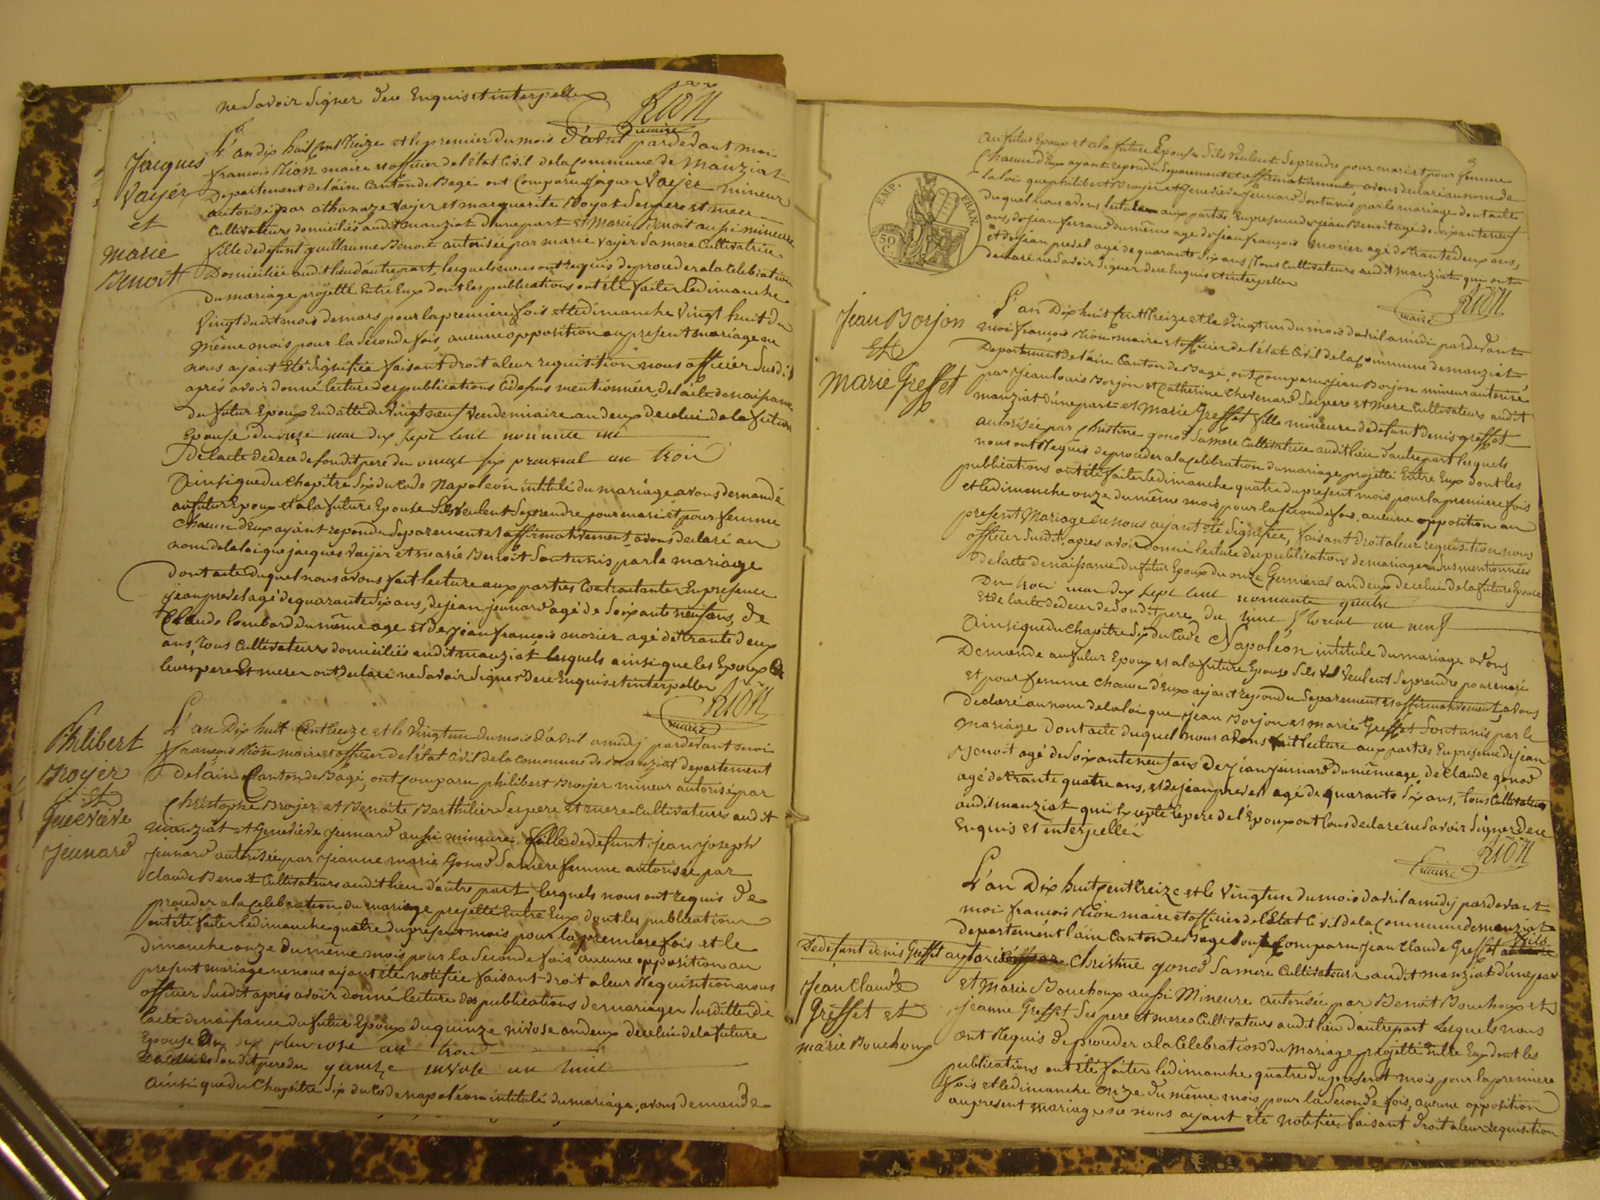 ne Savoir Signer de ce Enquis et interpellés
RION
maire
Jacques
Vayér
et
marie
Benoit
L'an dix huit Cent treize et le premier du mois d'avril pardevant moi
françois Rion maire et officier de l'Etat Civil de la commune de Manziat
Departement de l'ain Canton de Bagé ont Comparu jaques Vayer mineur
autorisé par athanaze Vayer et marguerite Boyat Ses pere et mere
Cultivateurs domiciliés audit manziat d'une part et Marie Benoit aussi mineure
fille de defunt guillaume Benoit autorisée par marie vayer Sa mere Cultivatrice
Domiciliée audit lieu d'autre part, lesquels nous ont requis de proceder a la Celebration
du mariage projetté Entre Eux dont les publications ont été faites le dimanche
Vingt du dit mois de mars pour la premiere fois et le dimanche Vingt huit du
même mois pour la Seconde fois aucune opposition au present mariage ne
nous ayant Eté Signifiée faisant Droit a leur requisition nous officier Susdit
après avoir donné lecture des publications Cidessus mentionnées, de l'acte de naissance
du futur Epoux En datte du vingt neuf Vendemiaire an deux de celui de la future
Epouse du onze mai dix sept cent nonante
De l'acte de deces de son dit pere du vingt six prairial an trois
Ainsi que du Chapitre Six du Code Napoleon intitulé du mariage avons demandé
au futur Epoux et a la future Epouse S'ils Veulent Se prendre pour mari et pour femme
Chacun d'Eux ayant repondu Separement et affirmativement, avons declaré au
nom de la loi que jacques Vayér et marie Benoit Sont unis par le mariage
dont acte Duquel nous avons fait lecture aux parties Contractantes En presence
jean predel agé de quarante Six ans, de jean jeunard agé de Soixante neuf ans, de
Claude lombard du même age et de jean françois morier agé de trante deux
ans, tous Cultivateurs domiciliés audit manziat lesquels ainsi que les Epoux Et
leurs pere Et meres ont Declaré ne Savoir Signer De ce Enquis et interpellés
RION
maire
Philibert
Broyer
Et
Genevieve
Jeunard
L'an Dix huit Cent treize et le Vingt un du mois d'avril a midy pardevant moi
françois Rion maire et officier de l'Etat Civil de la Commune de manziat departement
de l'ain Canton de Bagé, ont Comparu philibert Broyer mineur autorisé par
Christophe Broyer et Benoite Barthilier Ses pere Et mere Cultivateurs audit
manziat et Geneviéve jeunard aussi mineure fille de defunt jean joseph
jeunard autorisée par jeanne marie Gonod Sa mere femme autorisée par
Claude Benoit Cultivateurs audit lieu d'autre part lesquels nous ont requis de
proceder a la Celebration du mariage projetté Entre Eux dont les publications
ont été faites le dimanche quatre du present mois pour la premiere fois et le
Dimanche onze du même mois pour la Seconde fois aucune opposition au
present mariage ne nous ayant Eté notifiée faisant Droit a leur Requisition nous
officier Susdit après avoir donné lecture des publications de mariages Susdittes de
l'acte de naissance du futur Epoux du quinze nivose an deux de celui de la future
Epouse du dix pluviose an trois
Son dit pere du quinze nivose an huit
Ainsi que du Chapitre Six du Code napoléon intitulé du mariage, avons demandé
au futur Epoux et a la future Epouse S'ils Veulent Se prendre pour mari et pour femme
Chacun d'Eux ayant repondu Separement et affirmativement, avons declaré au nom de
la loi que philibert Broyer et Geneviéve jeunard Sont unis par le mariage dont acte
duquel nous avons fait lecture aux parties En presence de jean Benoit agé de Soixante neuf
ans, de jean ferrand du même age de jean françois morier agé de trante deux ans,
et de jean predel agé de quarante Six ans, tous Cultivateurs audit manziat qui ont
declaré ne Savoir Signer de ce Enquis et interpellés
EMP. FRAN.
50
C.
RION
maire
Jean Borjon
Et
Marie Greffet
L'an Dix huit Cent treize et le Vingt un du mois d'avril a midi pardevant
moi françois Rion maire et officier de l'état Civil de la commune de manziat
Departement de l'ain Canton de Bagé, ont Comparu jean Borjon mineur autorisé
par Jean louis Borjon et Catherine Chevenard Ses pere et mere Cultivateurs audit
manziat d'une part et Marie Greffet fille mineure de defunt denis greffet
autorisée par Christine gonod Sa mere Cultivatrice audit lieu d'autre part lesquels
nous ont Requis de proceder a la Celebration du mariage projetté Entre Eux dont les
publications ont été faites le dimanche quatre du present mois pour la premiere fois
et le dimanche onze du même mois pour la Seconde fois, aucune opposition au
present Mariage ne nous ayant été Signifiée, faisant Droit a leur requisition, nous
officier Susdit, après avoir Donné lecture des publications de mariage cidessus mentionnées
De l'acte de naissance du futur Epoux du onze Germinal an deux de celui de la future Epouse
Du trois mai dix sept cent nonante quatre
Et de l'acte de deces de Son dit pere du huit floreal an neuf
Ainsi que du Chapitre Six du Code Napoléon intitulé du mariage avons
Demandé au futur Epoux et a la future Epouse S'ils Veulent Se prendre pour mari
et pour femme Chacun d'Eux ayant Repondu Separement et affirmativement, avons
Declaré au nom de la loi que jean Borjon et marie Greffet Sont unis par le
Mariage dont acte duquel nous avons fait lecture aux parties En presence de jean
Benoit agé de Soixante neuf ans De jean jeunard du même age, de Claude gonod
agé de trante quatre ans, et de jean predel agé de quarante Six ans, tous Cultivateurs
audit manziat qui Excepté le pere de l'Epoux ont tous declaré ne Savoir Signer De ce
Enquis Et interpellés
RION
maire
De defunt denis Greffet
Jean Claude
Greffet et
Marie Bouchoux
L'an Dix huit Cent treize et le Vingt un du mois d'avril a midy pardevant
moi françois Rion maire et officier de l'Etat Civil de la Commune de manziat
departement l'ain Canton de Bagé Comparu Jean Claude Greffet fils
autorisé par Christine gonod Sa mere Cultivateurs audit manziat d'une part
et Marie Bouchoux aussi Mineure autorisée par Benoit Bouchoux et
jeanne Greffet Ses pere et mere Cultivateurs audit lieu d'autre part lesquels nous
ont Requis de proceder a la Celebration du Mariage projetté Entre Eux dont les
publications ont été faites le dimanche quatre du present mois pour la premiere
fois et le dimanche onze du même mois pour la Seconde fois, aucune opposition
au present mariage ne nous ayant été notifiée, faisant Droit a leur Requisition